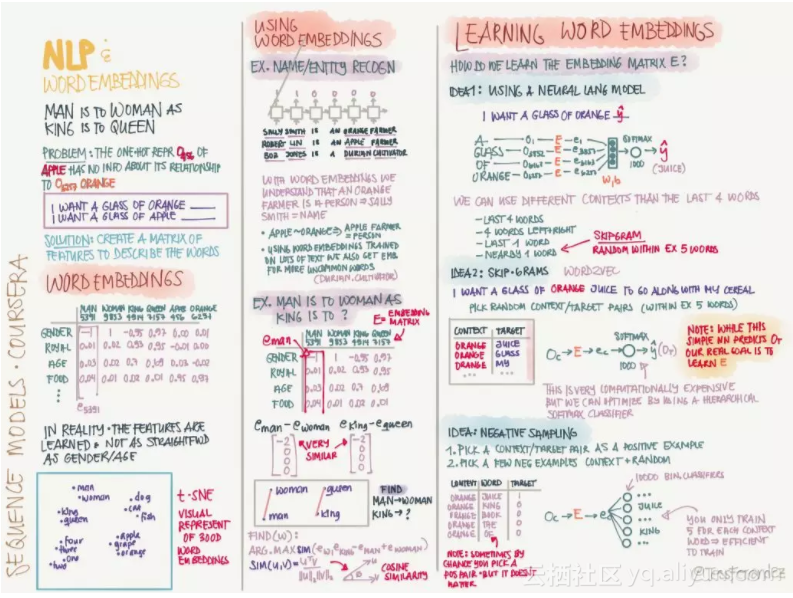 SEQUENCE MODELS · COURSERA
NLP &
WORD EMBEDDINGS
MAN IS TO WOMAN AS
KING IS TO QUEEN
PROBLEM: THE ONE-HOT REPR O456 OF
APPLE HAS NO INFO ABOUT ITS RELATIONSHIP
TO O6257 ORANGE
I WANT A GLASS OF ORANGE
I WANT A GLASS OF APPLE
SOLUTION: CREATE A MATRIX OF
FEATURES TO DESCRIBE THE WORDS
WORD EMBEDDINGS
MAN WOMAN KING QUEEN APPLE ORANGE
5391 9853 4914 7157 456 6257
GENDER -1 1 -0.95 0.97 0.00 0.01
ROYAL 0.01 0.02 0.93 0.95 -0.01 0.00
AGE 0.03 0.02 0.7 0.69 0.03 -0.02
FOOD 0.04 0.01 0.02 0.01 0.95 0.97
e5391
IN REALITY · THE FEATURES ARE
LEARNED & NOT AS STRAIGHTFWD
AS GENDER/AGE
man
woman
dog
cat
fish
king
queen
four
three
one
two
apple
grape
orange
t-SNE
VISUAL
REPRESENT
OF 300D
WORD
EMBEDDINGS
USING
WORD EMBEDDINGS
EX. NAME/ENTITY RECOGN
1 1 0 0 0 0
SALLY SMITH IS AN ORANGE FARMER
ROBERT LIN IS AN APPLE FARMER
BOB JONES IS A DURIAN CULTIVATOR
WITH WORD EMBEDDINGS WE
UNDERSTAND THAT AN ORANGE
FARMER IS A PERSON ⇒ SALLY
SMITH = NAME
· APPLE ~ ORANGE ⇒ APPLE FARMER
= PERSON
· USING WORD EMBEDDINGS TRAINED
ON LOTS OF TEXT WE ALSO GET EMB
FOR MORE UNCOMMON WORDS
(DURIAN, CULTIVATOR)
EX. MAN IS TO WOMAN AS
KING IS TO ?
E = EMBEDDING
MATRIX
eman
MAN WOMAN KING QUEEN
5391 9853 4914 7157
GENDER -1 1 -0.95 0.97
ROYAL 0.01 0.02 0.93 0.95
AGE 0.03 0.02 0.7 0.69
FOOD 0.04 0.01 0.02 0.01
eman - ewoman eking - equeen
[-2 0 0 0] VERY SIMILAR [-2 0 0 0]
woman queen
man king
FIND
MAN→WOMAN
KING→?
FIND(W):
ARG.MAX SIM(ew, eking - eman + ewoman)
SIM(U,V) = UᵀV / ||U||₂||V||₂
COSINE
SIMILARITY
LEARNING WORD EMBEDDINGS
HOW DO WE LEARN THE EMBEDDING MATRIX E?
IDEA1: USING A NEURAL LANG MODEL
I WANT A GLASS OF ORANGE ŷ
A — O1 — E — e1
GLASS — O3852 — E — e3852
OF — E
ORANGE — O6257 — E — e6257
SOFTMAX
1000
W,b
ŷ
(JUICE)
WE CAN USE DIFFERENT CONTEXTS THAN THE LAST 4 WORDS
- LAST 4 WORDS
- 4 WORDS LEFT/RIGHT
- LAST 1 WORD
- NEARBY 1 WORD
SKIPGRAM
RANDOM WITHIN EX 5 WORDS
IDEA2: SKIP-GRAMS WORD2VEC
I WANT A GLASS OF ORANGE JUICE TO GO ALONG WITH MY CEREAL
PICK RANDOM CONTEXT/TARGET PAIRS (WITHIN EX 5 WORDS)
CONTEXT TARGET
ORANGE JUICE
ORANGE GLASS
ORANGE MY
...
SOFTMAX
Oc → E → ec → ŷ (OT)
1000
NOTE: WHILE THIS
SIMPLE NN PREDICTS OT
OUR REAL GOAL IS TO
LEARN E
THIS IS VERY COMPUTATIONALLY EXPENSIVE
BUT WE CAN OPTIMIZE BY USING A HIERARCHICAL
SOFTMAX CLASSIFIER
IDEA: NEGATIVE SAMPLING
1. PICK A CONTEXT/TARGET PAIR AS A POSITIVE EXAMPLE
2. PICK A FEW NEG EXAMPLES CONTEXT + RANDOM
CONTEXT WORD TARGET
ORANGE JUICE 1
ORANGE KING 0
ORANGE BOOK 0
ORANGE THE 0
ORANGE OF 0
NOTE: SOMETIMES BY
CHANCE YOU PICK A
POS PAIR · BUT IT DOESN'T
MATTER
Oc → E → ec
10000 BIN. CLASSIFIERS
...
JUICE
...
KING
...
YOU ONLY TRAIN
5 FOR EACH CONTEXT
WORD ⇒ EFFICIENT
TO TRAIN
@TessFerrandez
云栖社区 yq.aliyun.com